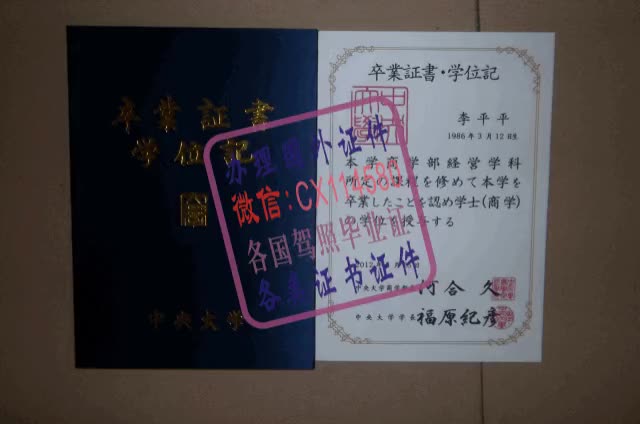 卒業証書
学位記
中央大学
卒業証書・学位記
李平平
1986年3月12日生
本学商学部経営学科
所定の課程を修めて本学を
卒業したことを認め学士(商学)
の学位を授与する
河合久
中央大学学長 福原紀彦
办理国外证件
微信:CX114580
各国驾照毕业证
各类证书证件